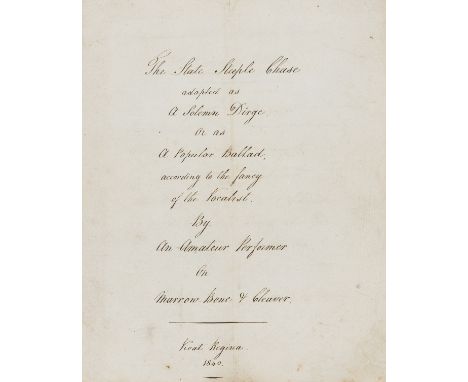 The State Steeple Chase
adapted as
A Solemn Dirge
Or as
A Popular Ballad.
according to the fancy
of the Vocalist.
By
An Amateur Performer
On
Marrow Bone & Cleaver.
Vivat Regina
1840.